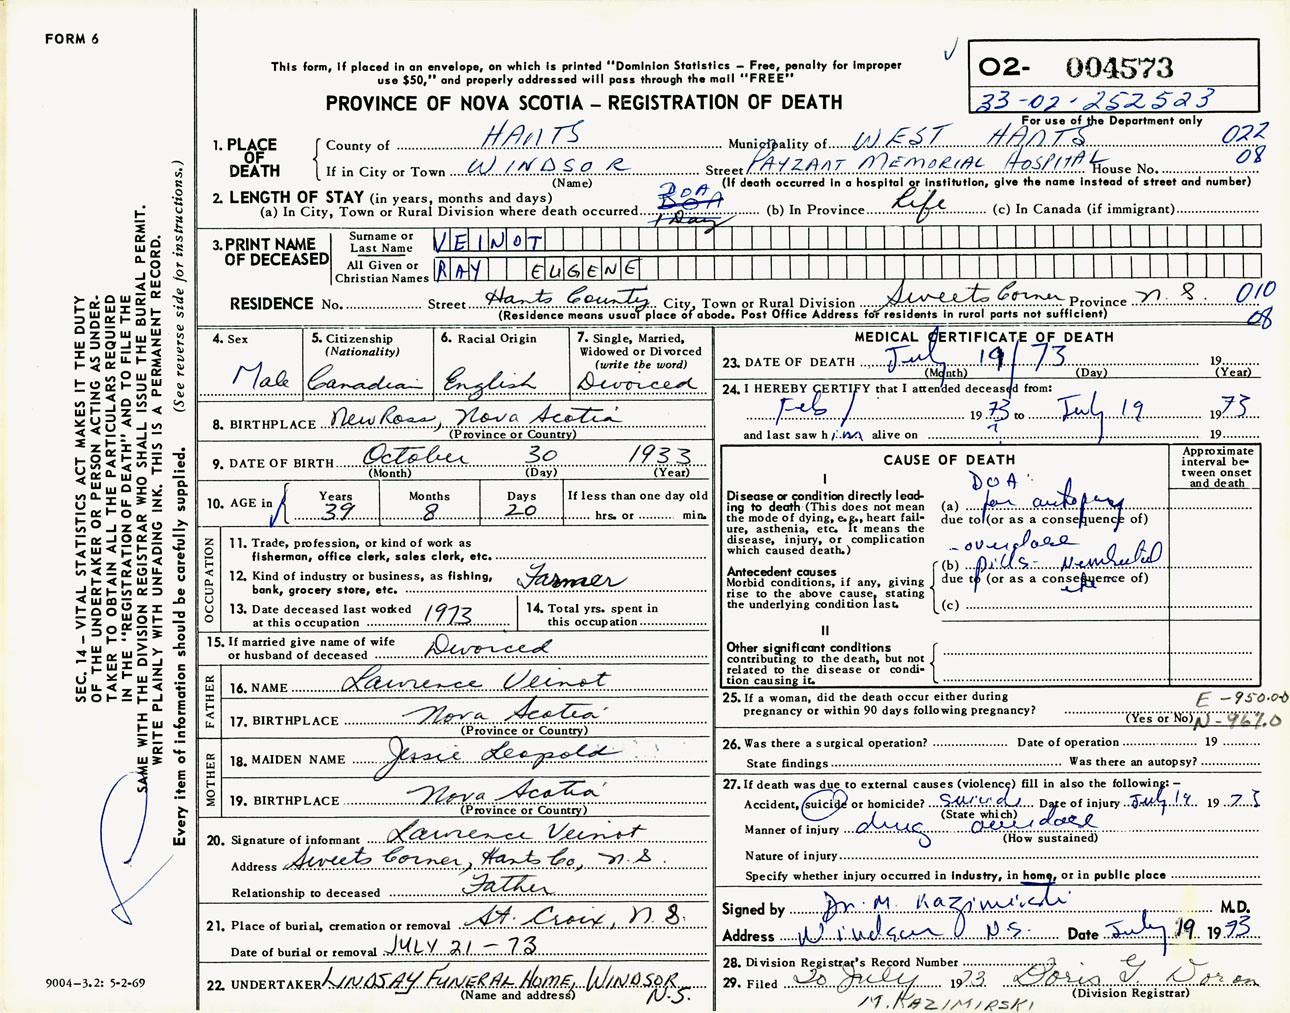 FORM 6
This form, if placed in an envelope, on which is printed "Dominion Statistics – Free, penalty for improper
use $50," and properly addressed will pass through the mail "FREE"
PROVINCE OF NOVA SCOTIA – REGISTRATION OF DEATH
02- 004573
33-02-252523
For use of the Department only
1. PLACE OF DEATH
County of HANTS Municipality of WEST HANTS 022
If in City or Town WINDSOR Street PAYZANT MEMORIAL HOSPITAL House No. 08
(Name) (If death occurred in a hospital or institution, give the name instead of street and number)
2. LENGTH OF STAY (in years, months and days) DOA
(a) In City, Town or Rural Division where death occurred DOA 1 Day (b) In Province Life (c) In Canada (if immigrant)
3. PRINT NAME OF DECEASED
Surname or Last Name VEINOT
All Given or Christian Names RAY EUGENE
RESIDENCE No. Street Hants County City, Town or Rural Division Sweets Corner Province N.S. 010
(Residence means usual place of abode. Post Office Address for residents in rural parts not sufficient) 08
4. Sex Male
5. Citizenship (Nationality) Canadian
6. Racial Origin English
7. Single, Married, Widowed or Divorced (write the word) Divorced
8. BIRTHPLACE New Ross, Nova Scotia
(Province or Country)
9. DATE OF BIRTH October 30 1933
(Month) (Day) (Year)
10. AGE in Years 39 Months 8 Days 20 If less than one day old hrs. or min.
OCCUPATION
11. Trade, profession, or kind of work as
fisherman, office clerk, sales clerk, etc.
12. Kind of industry or business, as fishing,
bank, grocery store, etc. Farmer
13. Date deceased last worked
at this occupation 1973
14. Total yrs. spent in
this occupation
15. If married give name of wife
or husband of deceased Divorced
FATHER
16. NAME Lawrence Veinot
17. BIRTHPLACE Nova Scotia
(Province or Country)
MOTHER
18. MAIDEN NAME Jessie Leopold
19. BIRTHPLACE Nova Scotia
(Province or Country)
20. Signature of informant Lawrence Veinot
Address Sweets Corner, Hants Co, N.S.
Relationship to deceased Father
21. Place of burial, cremation or removal St. Croix, N.S.
Date of burial or removal JULY 21-73
22. UNDERTAKER LINDSAY FUNERAL HOME, WINDSOR N.S.
(Name and address)
MEDICAL CERTIFICATE OF DEATH
23. DATE OF DEATH July 19/73 19
(Month) (Day) (Year)
24. I HEREBY CERTIFY that I attended deceased from:
Feb / 1973 to July 19 1973
and last saw him alive on ? 19
CAUSE OF DEATH
Approximate interval between onset and death
I
Disease or condition directly lead-
ing to death (This does not mean
the mode of dying, e.g., heart fail-
ure, asthenia, etc. It means the
disease, injury, or complication
which caused death.)
DOA
(a) for autopsy
due to (or as a consequence of)
Antecedent causes
Morbid conditions, if any, giving
rise to the above cause, stating
the underlying condition last.
- overdose
(b) pills - Nembutal
due to (or as a consequence of)
etc
(c)
II
Other significant conditions
contributing to the death, but not
related to the disease or condi-
tion causing it.
25. If a woman, did the death occur either during
pregnancy or within 90 days following pregnancy?
(Yes or No)
E-950.00
N-967.0
26. Was there a surgical operation? Date of operation 19
State findings Was there an autopsy?
27. If death was due to external causes (violence) fill in also the following:–
Accident, suicide or homicide? Suicide Date of injury July 19 1973
(State which)
Manner of injury drug overdose
(How sustained)
Nature of injury
Specify whether injury occurred in industry, in home, or in public place
Signed by Dr. M. Kazimirski M.D.
Address Windsor N.S. Date July 19 1973
28. Division Registrar's Record Number
29. Filed 20 July 1973 Doris G. Doran
(Division Registrar)
M. KAZIMIRSKI
SEC. 14 – VITAL STATISTICS ACT MAKES IT THE DUTY
OF THE UNDERTAKER OR PERSON ACTING AS UNDER-
TAKER TO OBTAIN ALL THE PARTICULARS REQUIRED
IN THE "REGISTRATION OF DEATH" AND TO FILE THE
SAME WITH THE DIVISION REGISTRAR WHO SHALL ISSUE THE BURIAL PERMIT.
WRITE PLAINLY WITH UNFADING INK. THIS IS A PERMANENT RECORD.
Every item of information should be carefully supplied. (See reverse side for instructions.)
9004-3.2: 5-2-69